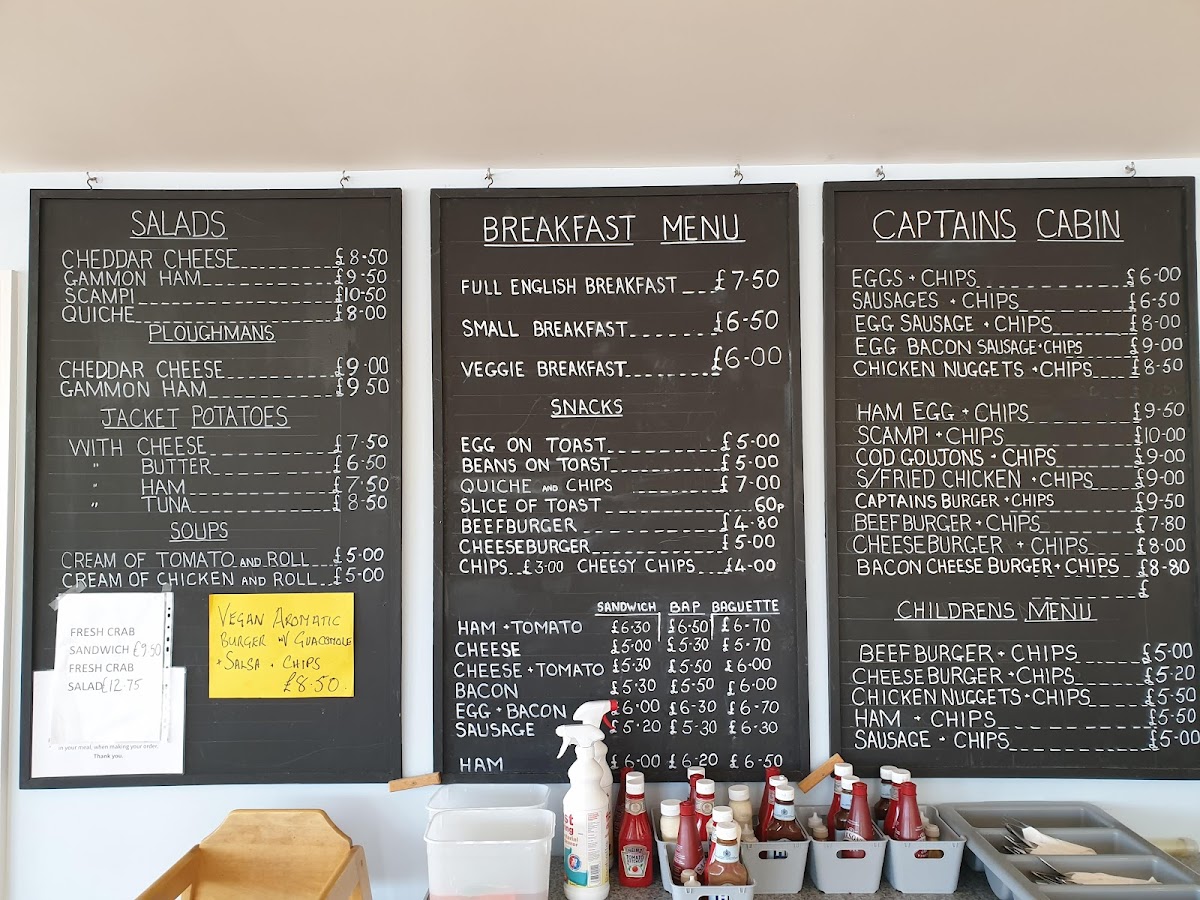 SALADS
CHEDDAR CHEESE £8-50
GAMMON HAM £9-50
SCAMPI £10-50
QUICHE £8-00
PLOUGHMANS
CHEDDAR CHEESE £9-00
GAMMON HAM £9 50
JACKET POTATOES
WITH CHEESE £7-50
" BUTTER £6-50
" HAM £7-50
" TUNA £8-50
SOUPS
CREAM OF TOMATO AND ROLL £5-00
CREAM OF CHICKEN AND ROLL £5-00
FRESH CRAB
SANDWICH £9.50
FRESH CRAB
SALAD £12-75
in your meal, when making your order.
Thank you.
VEGAN AROMATIC
BURGER W/ GUACOMOLE
+ SALSA + CHIPS
£8-50.
BREAKFAST MENU
FULL ENGLISH BREAKFAST £7-50
SMALL BREAKFAST £6-50
VEGGIE BREAKFAST £6-00
SNACKS
EGG ON TOAST £5-00
BEANS ON TOAST £5-00
QUICHE AND CHIPS £7-00
SLICE OF TOAST 60p
BEEFBURGER £4-80
CHEESEBURGER £5-00
CHIPS £3-00 CHEESY CHIPS £4-00
SANDWICH BAP BAGUETTE
HAM + TOMATO £6-30 £6-50 £6-70
CHEESE £5-00 £5-30 £5-70
CHEESE + TOMATO £5-30 £5-50 £6-00
BACON £5-30 £5-50 £6-00
EGG + BACON £6-00 £6-30 £6-70
SAUSAGE £5-20 £5-30 £6-30
HAM £6-00 £6-20 £6-50
CAPTAINS CABIN
EGGS + CHIPS £6-00
SAUSAGES + CHIPS £6-50
EGG SAUSAGE + CHIPS £8-00
EGG BACON SAUSAGE + CHIPS £9-00
CHICKEN NUGGETS + CHIPS £8-50
HAM EGG + CHIPS £9-50
SCAMPI + CHIPS £10-00
COD GOUJONS + CHIPS £9-00
S/FRIED CHICKEN + CHIPS £9-00
CAPTAINS BURGER + CHIPS £9-50
BEEFBURGER + CHIPS £7-80
CHEESEBURGER + CHIPS £8-00
BACON CHEESE BURGER + CHIPS £8-80
£
CHILDRENS MENU
BEEFBURGER + CHIPS £5-00
CHEESEBURGER + CHIPS £5-20
CHICKEN NUGGETS + CHIPS £5-50
HAM + CHIPS £5-50
SAUSAGE + CHIPS £5-00
HEINZ
TOMATO